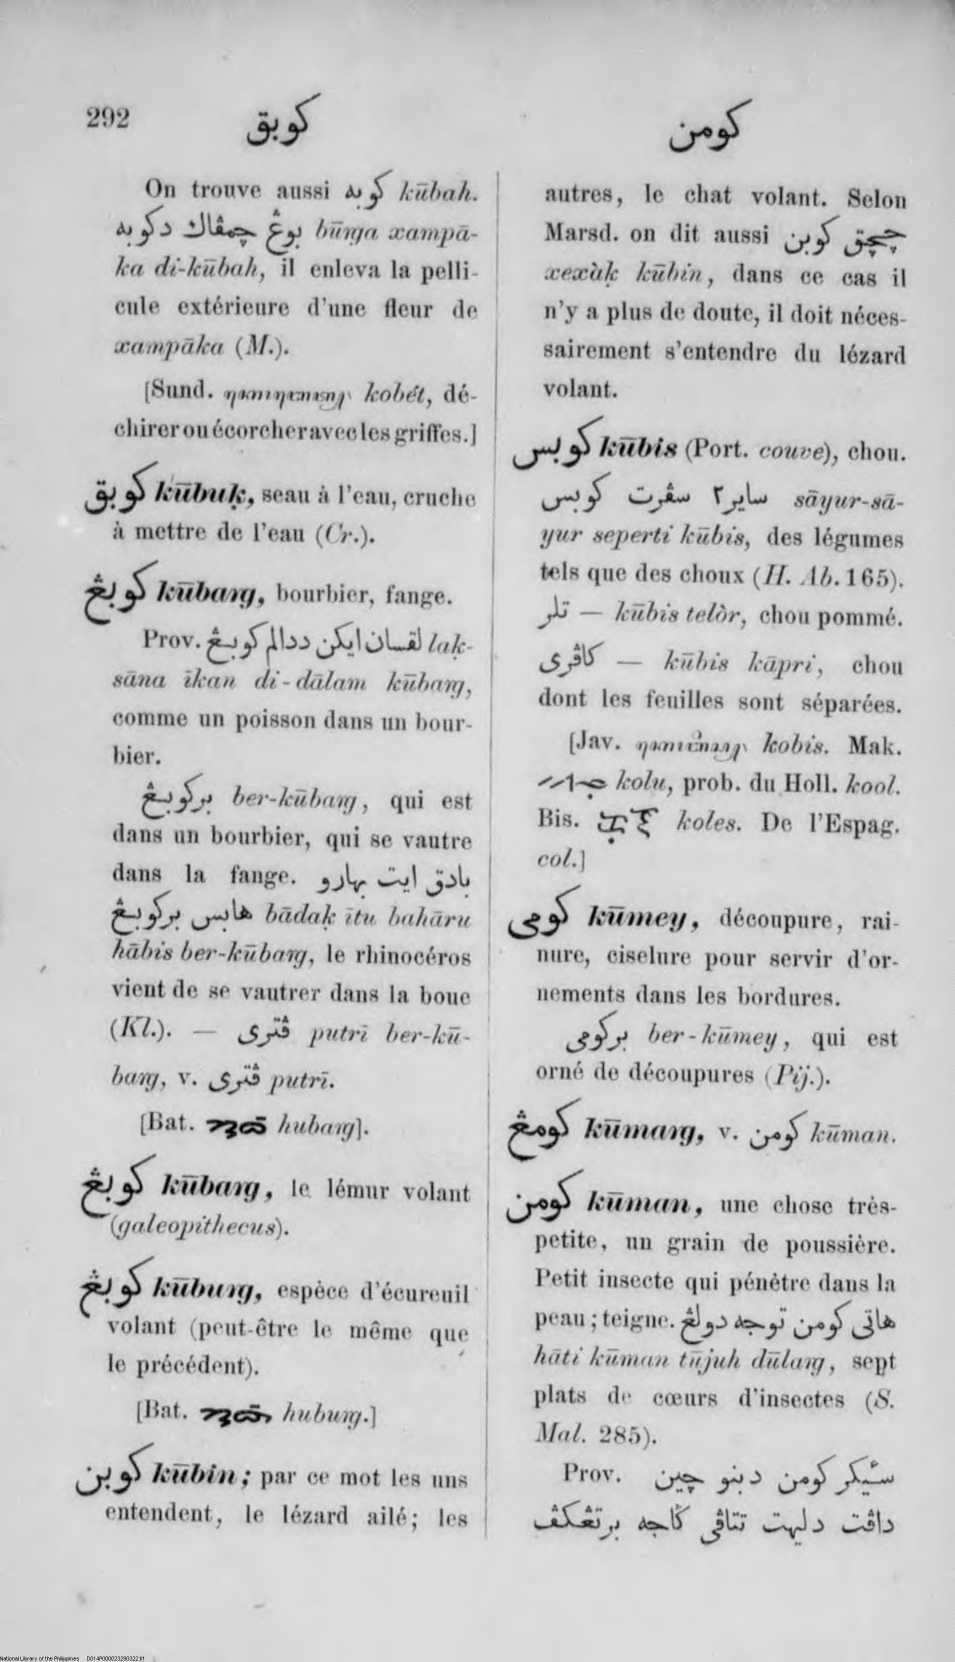 292 كوبق كومن
On trouve aussi كوبه kūbah.
بوڠ چمڤاك دكوبه būṅga xampā-
ka di-kūbah, il enleva la pelli-
cule extérieure d'une fleur de
xampāka (M.).
[Sund. kobét, dé-
chirer ou écorcher avec les griffes.]
كوبق kūbuḳ, seau à l'eau, cruche
à mettre de l'eau (Cr.).
كوبڠ kūbaṅg, bourbier, fange.
Prov. لقسان ايكن ددالم كوبڠ laḳ-
sāna īkan di-dālam kūbaṅg,
comme un poisson dans un bour-
bier.
بركوبڠ ber-kūbaṅg, qui est
dans un bourbier, qui se vautre
dans la fange. بادق ايت بهارو
هابس بركوبڠ bādaḳ ītu bahāru
hābis ber-kūbaṅg, le rhinocéros
vient de se vautrer dans la boue
(Kl.). — ڤتري putrī ber-kū-
baṅg, v. ڤتري putrī.
[Bat. hubaṅg].
كوبڠ kūbaṅg, le lémur volant
(galeopithecus).
كوبڠ kūbuṅg, espèce d'écureuil
volant (peut-être le même que
le précédent).
[Bat. hubuṅg.]
كوبن kūbin; par ce mot les uns
entendent, le lézard ailé; les
autres, le chat volant. Selon
Marsd. on dit aussi چچق كوبن
xexàḳ kūbin, dans ce cas il
n'y a plus de doute, il doit néces-
sairement s'entendre du lézard
volant.
كوبس kūbis (Port. couve), chou.
ساير٢ سڤرت كوبس sāyur-sā-
yur seperti kūbis, des légumes
tels que des choux (H. Ab. 165).
تلر — kūbis telòr, chou pommé.
كاڤري — kūbis kāpri, chou
dont les feuilles sont séparées.
[Jav. kobis. Mak.
kolu, prob. du Holl. kool.
Bis. koles. De l'Espag.
col.]
كومي kūmey, découpure, rai-
nure, ciselure pour servir d'or-
nements dans les bordures.
بركومي ber-kūmey, qui est
orné de découpures (Pij.).
كومڠ kūmaṅg, v. كومن kūman.
كومن kūman, une chose très-
petite, un grain de poussière.
Petit insecte qui pénètre dans la
peau; teigne. هاتي كومن توجه دولڠ
hāti kūman tūjuh dūlaṅg, sept
plats de cœurs d'insectes (S.
Mal. 285).
Prov. سئيكر كومن دبنو چين
داڤت دليهت تتاڤي ڬاجه برتڠكڤ
National Library of the Philippines